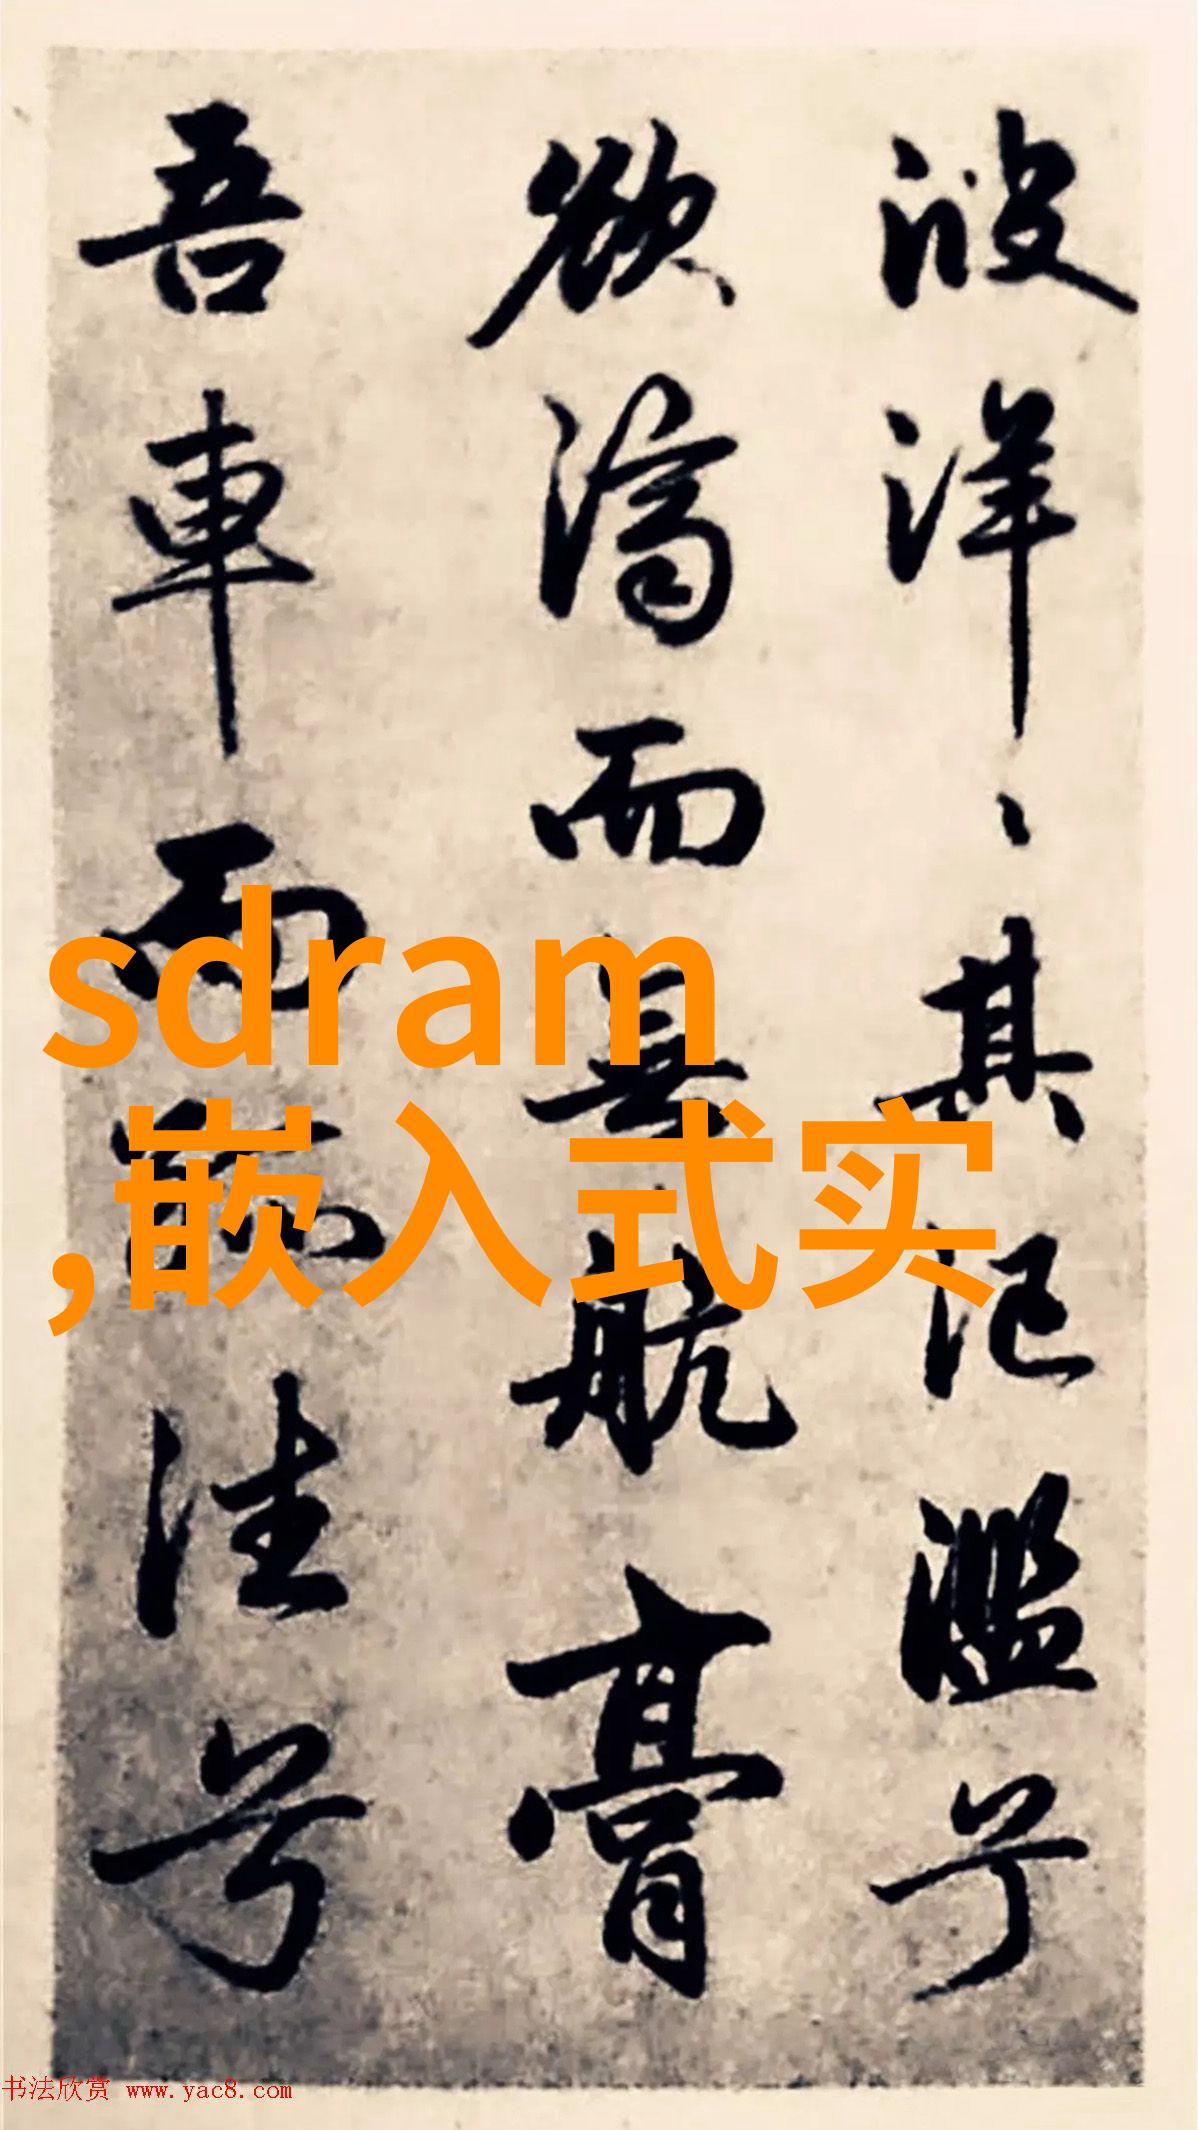 波洋、其汜濫兮
欲濟而無航膏
吾車而兮
sdram
,嵌入式实
书法欣赏 www.yac8.com